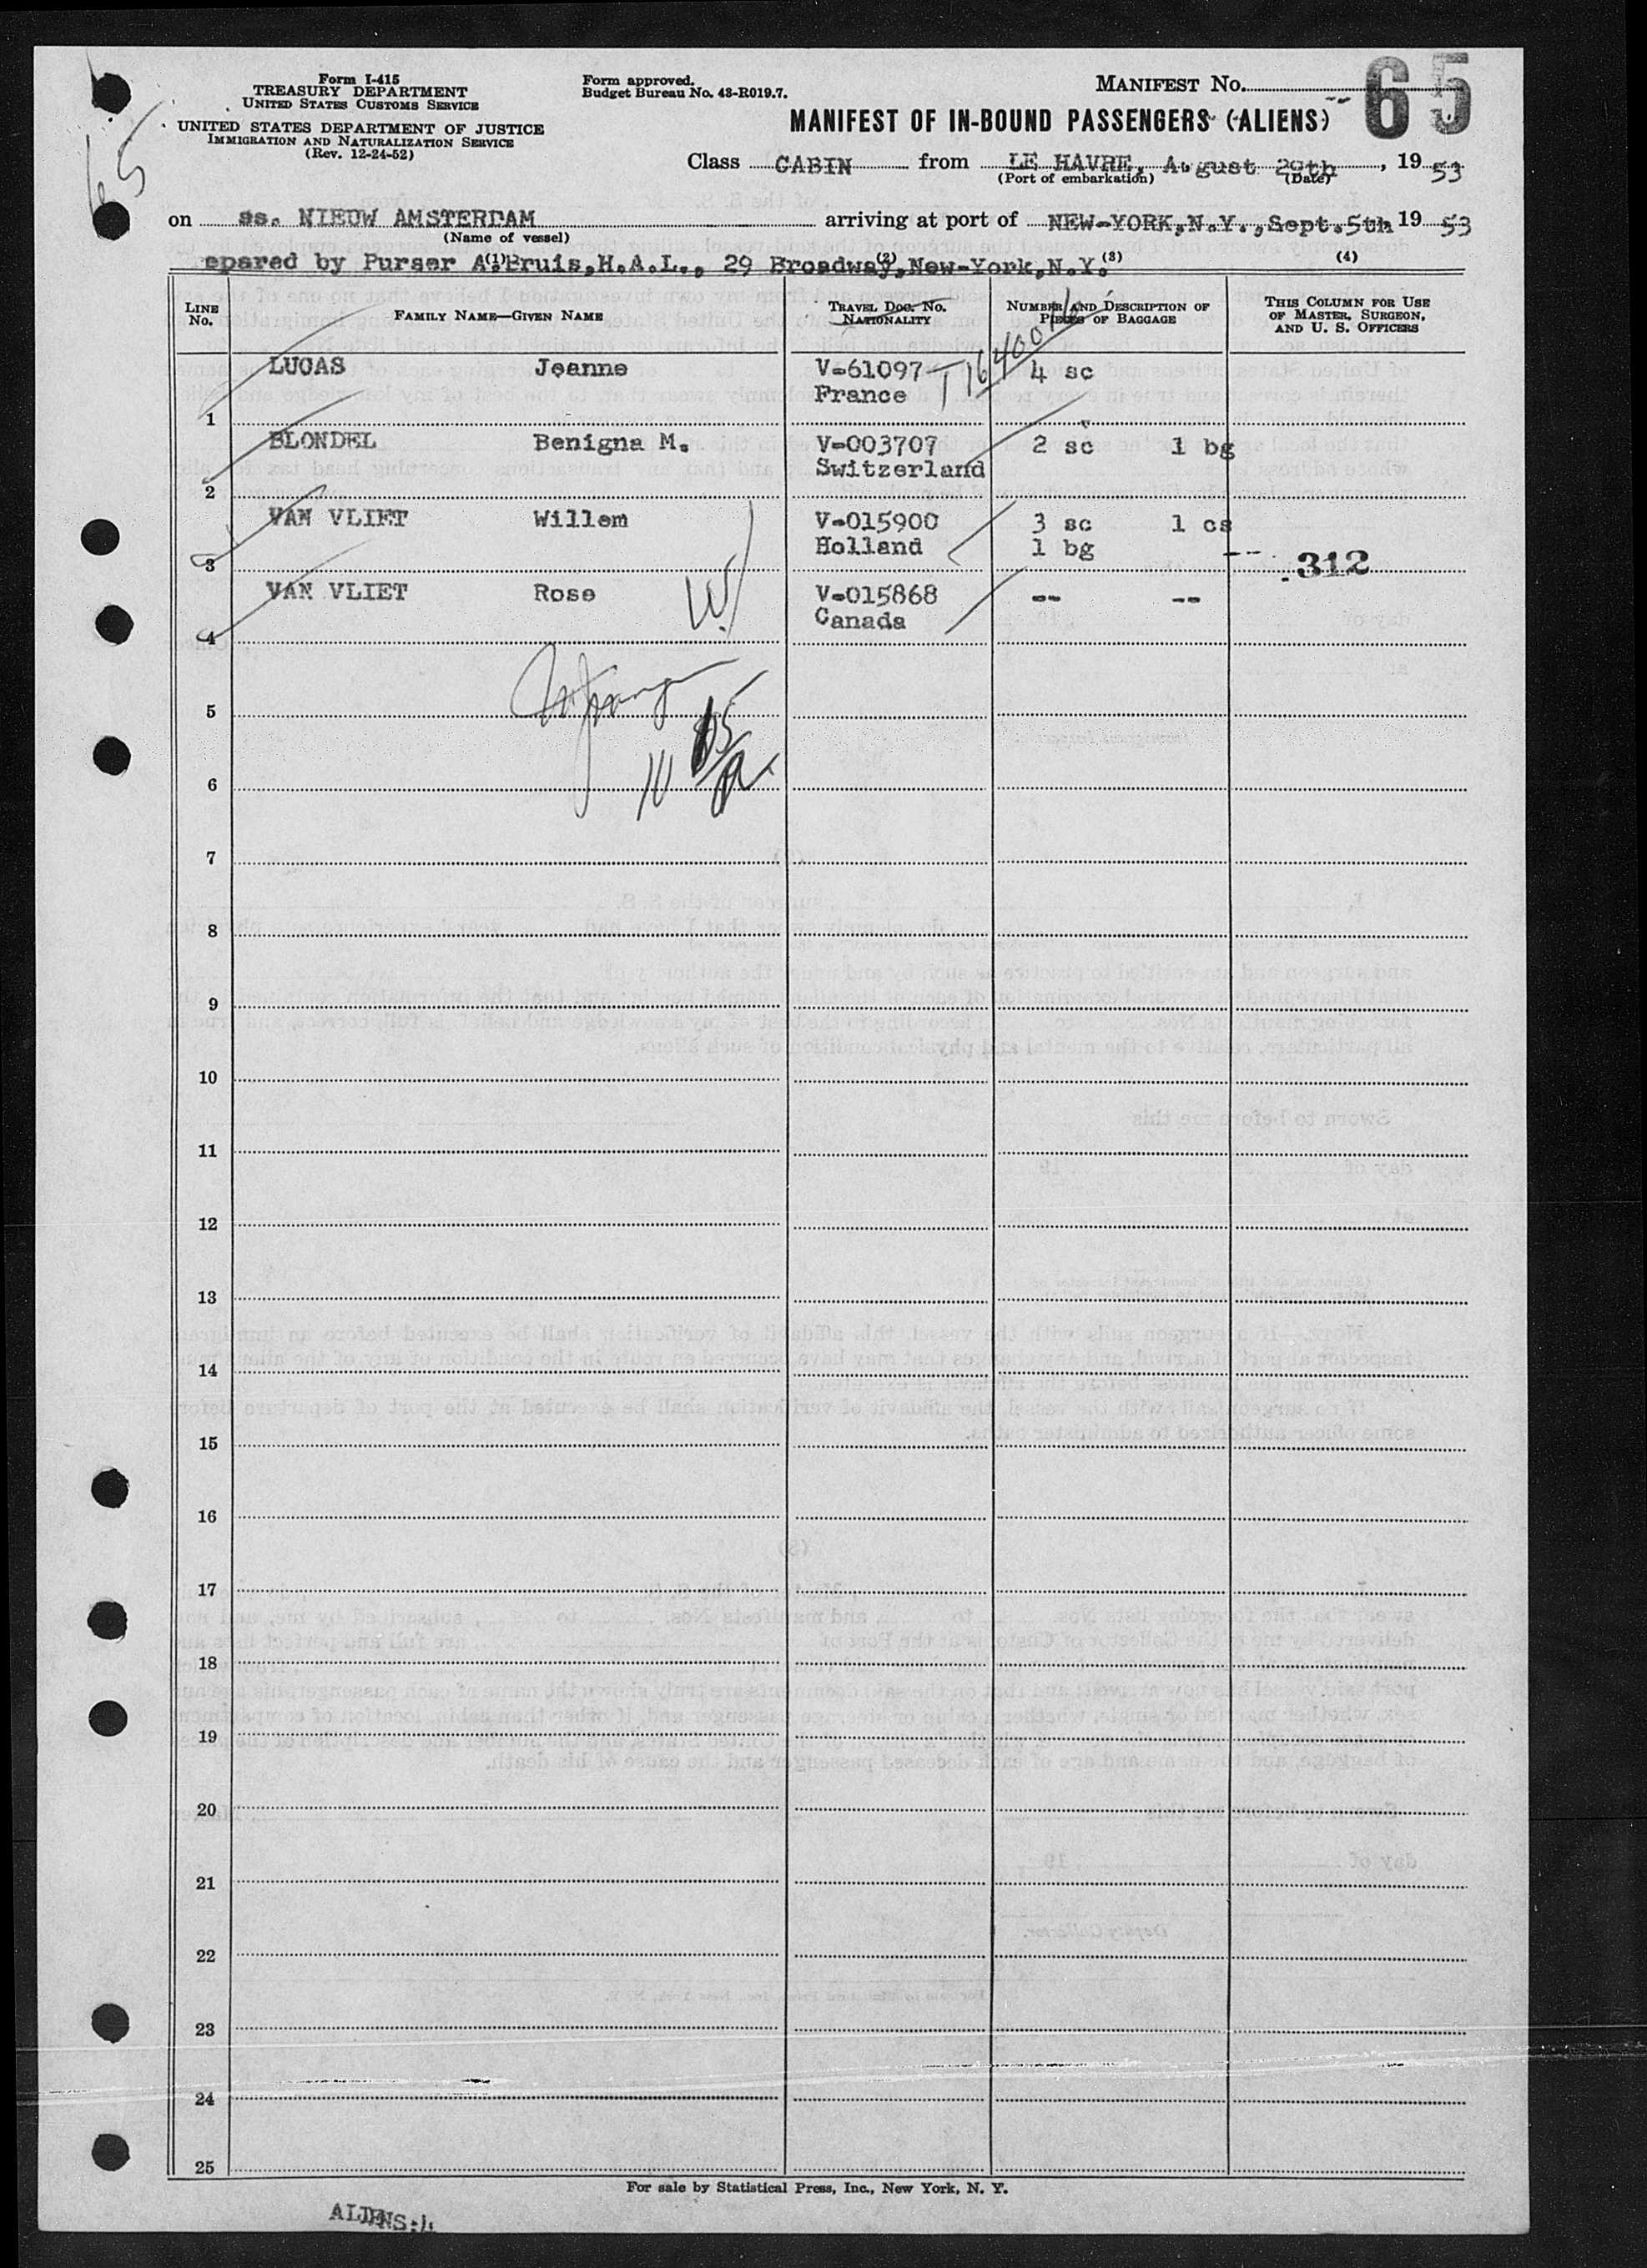 Form I-415
TREASURY DEPARTMENT
UNITED STATES CUSTOMS SERVICE
UNITED STATES DEPARTMENT OF JUSTICE
IMMIGRATION AND NATURALIZATION SERVICE
(Rev. 12-24-52)
Form approved.
Budget Bureau No. 43-R019.7.
MANIFEST No. 65
MANIFEST OF IN-BOUND PASSENGERS (ALIENS)
65
Class CABIN from LE HAVRE, August , 19 53
(Port of embarkation) (Date)
on ss. NIEUW AMSTERDAM arriving at port of NEW-YORK,N.Y.,Sept.5th 19 53
(Name of vessel)
epared by Purser A.Bruis,H.A.L., 29 Broadway,New-York,N.Y.
(1) (2) (3) (4)
LINE No. FAMILY NAME—GIVEN NAME TRAVEL DOC. No. NATIONALITY NUMBER AND DESCRIPTION OF PIECES OF BAGGAGE THIS COLUMN FOR USE OF MASTER, SURGEON, AND U. S. OFFICERS
LUCAS Jeanne V-61097 4 sc
1 France
BLONDEL Benigna M. V-003707 2 sc 1 bg
2 Switzerland
VAN VLIET Willem V-015900 3 sc 1 cs
3 Holland 1 bg -- 312
VAN VLIET Rose V-015868 -- --
4 Canada
5
6
7
8
9
10
11
12
13
14
15
16
17
18
19
20
21
22
23
24
25
For sale by Statistical Press, Inc., New York, N. Y.